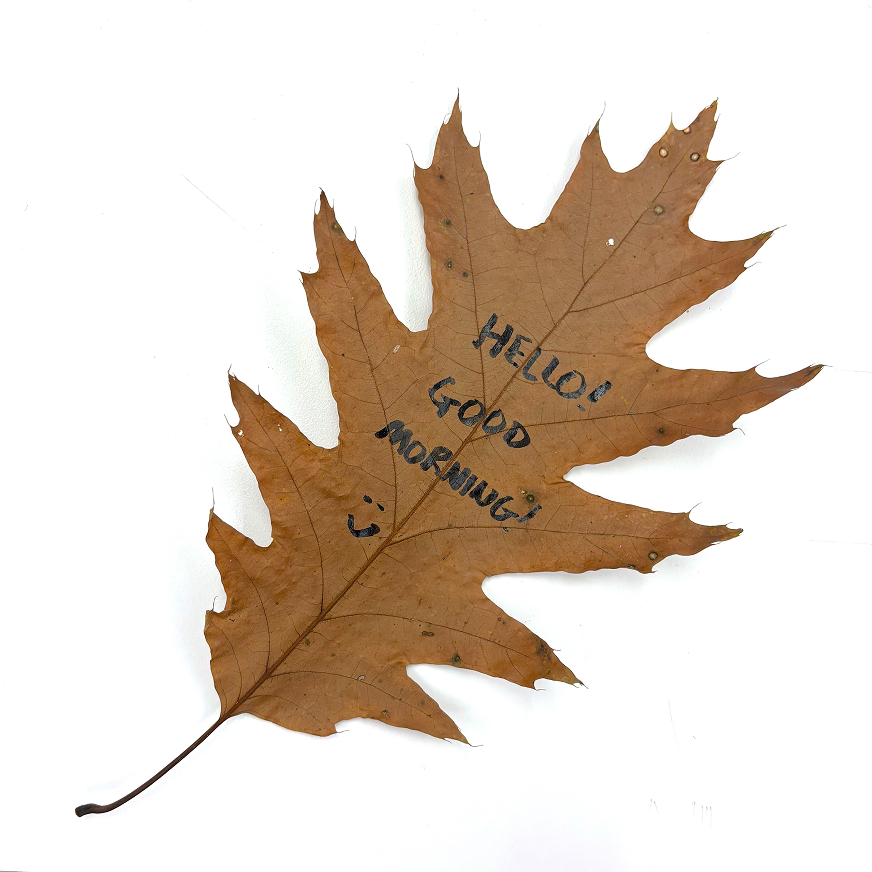 HELLO!
GOOD
MORNING!
:)